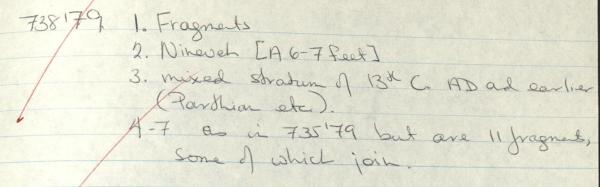 738'79 1. Fragments
2. Nineveh [A 6-7 feet]
3. mixed stratum of 13th C. AD ad earlier
(Parthian etc).
4-7 as in 735'79 but are 11 fragments,
some of which join.